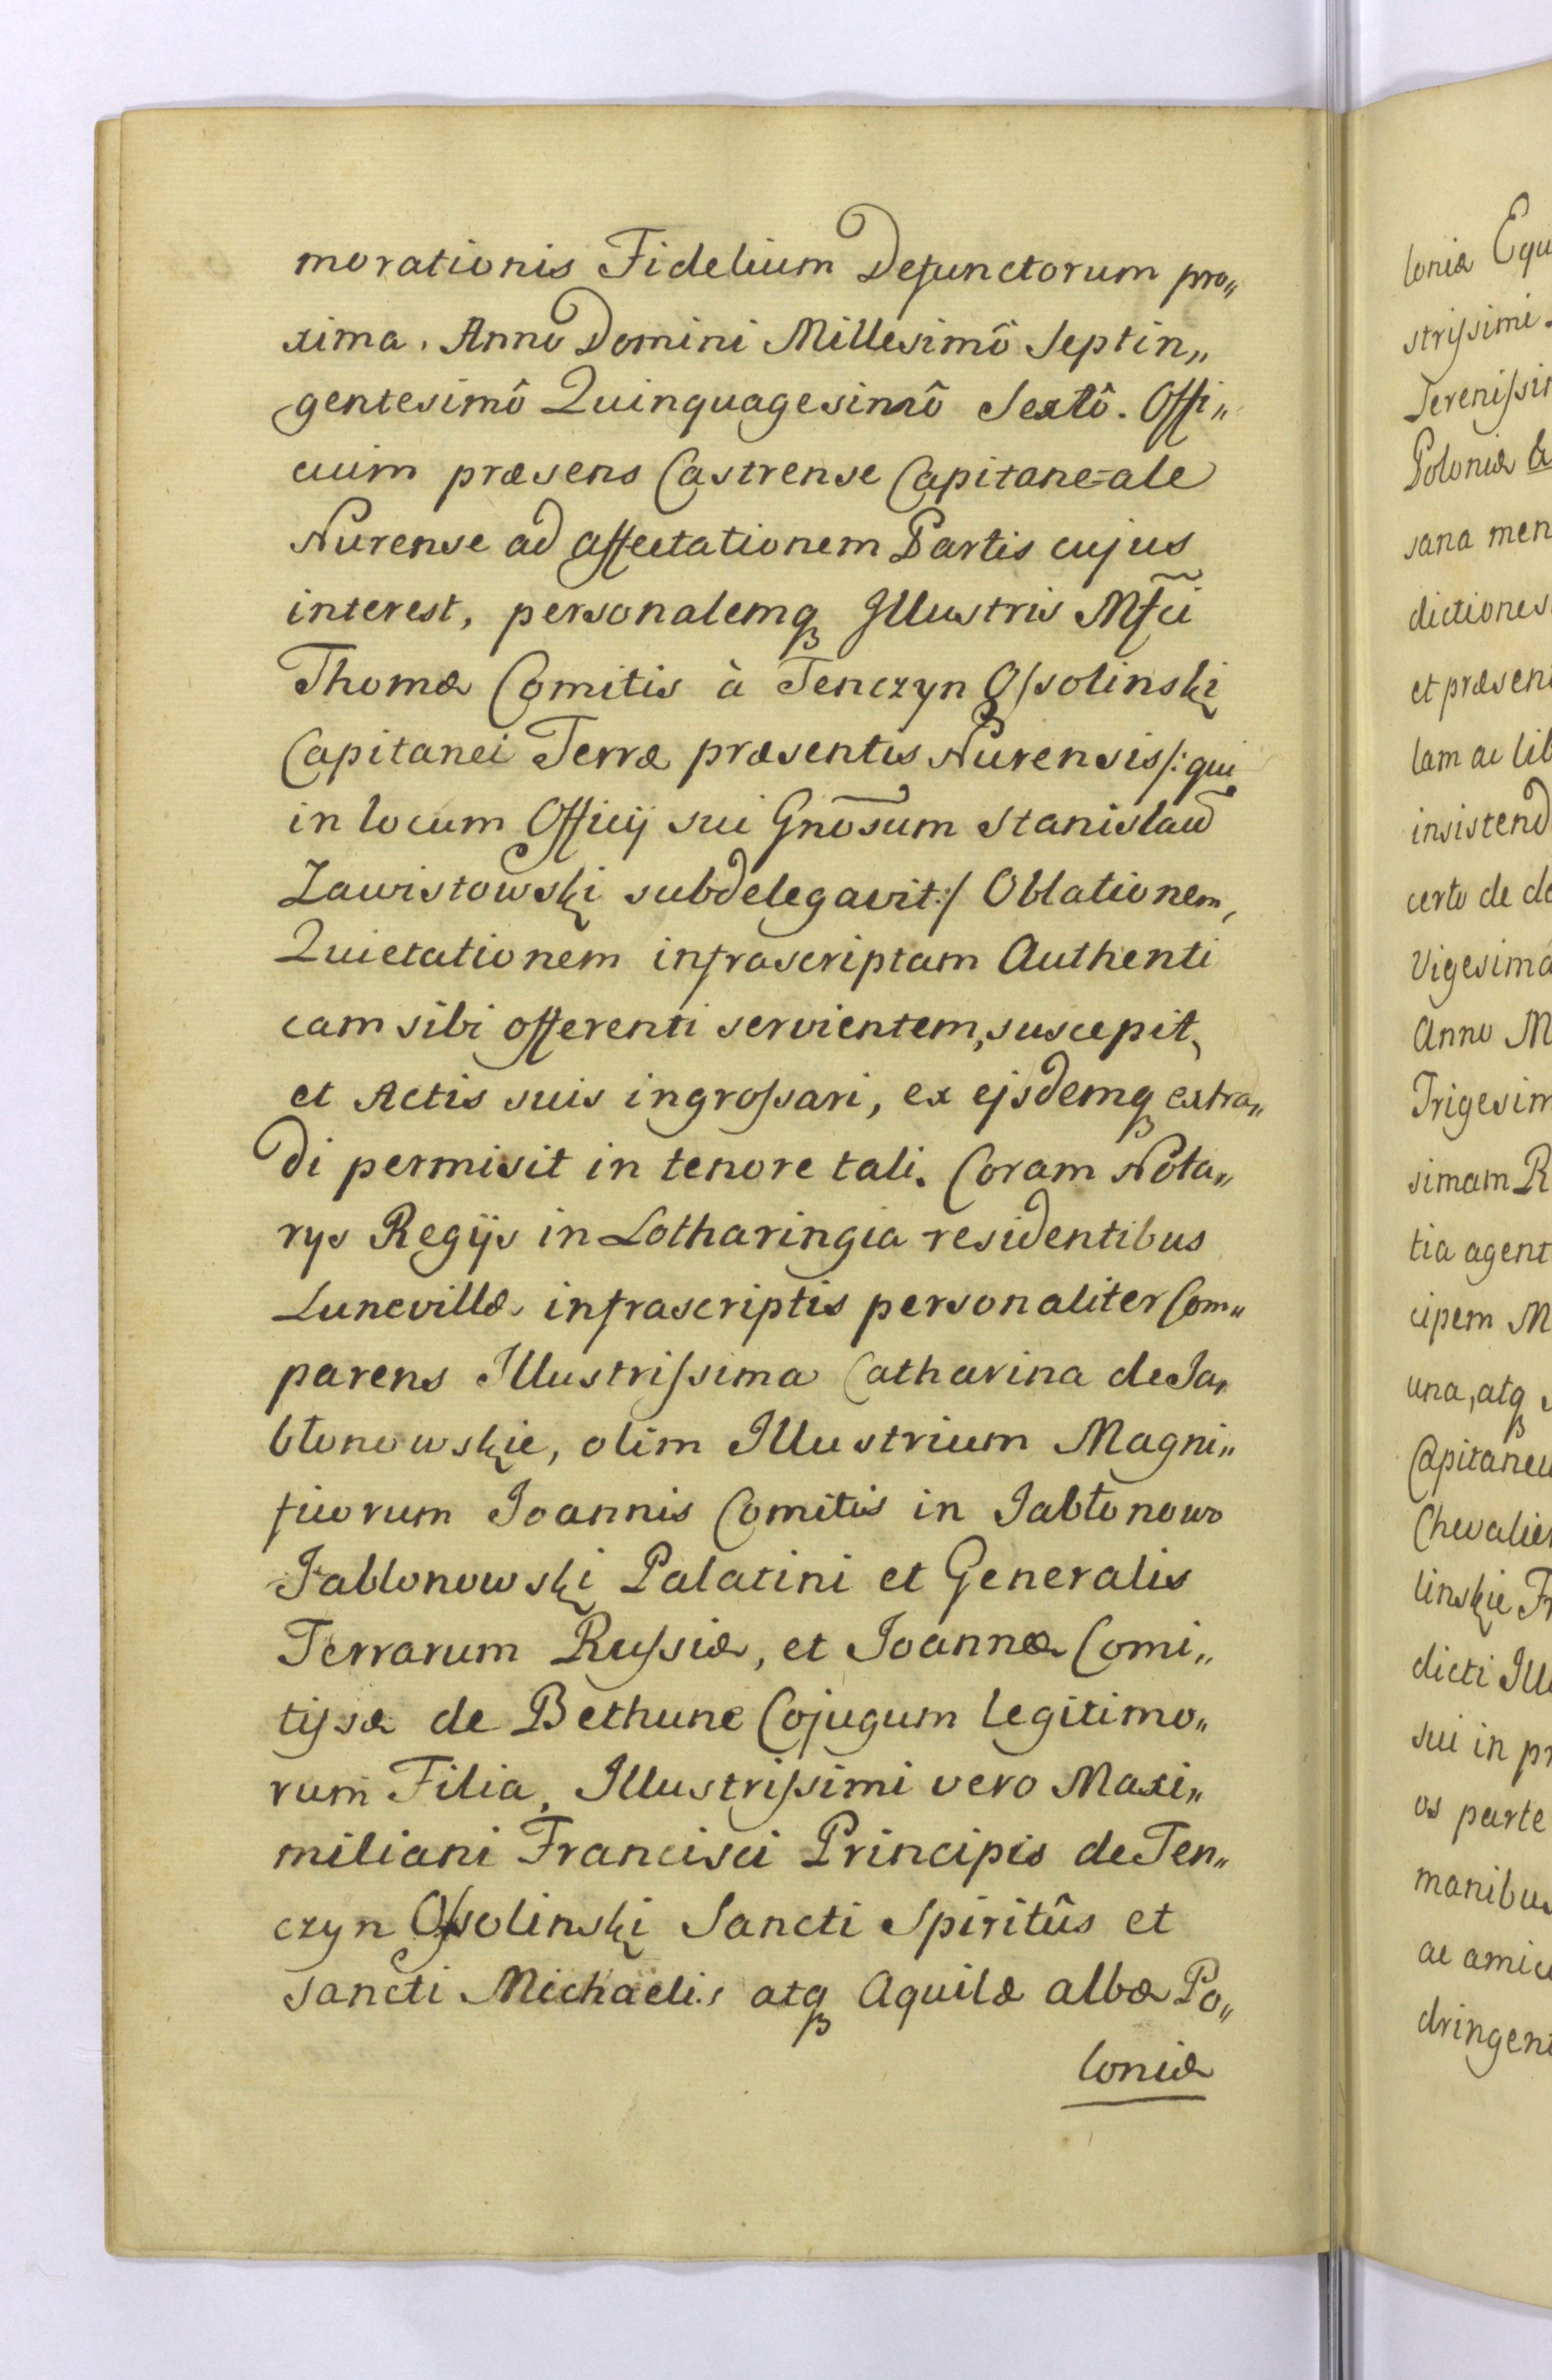 morationis Fidelium Defunctorum pro„
xima. Anno Domini Millesimô Septin„
gentesimô Quinquagesimô Sextô. Offi„
cium præsens Castrense Capitane=ale
Nurense ad affectationem Partis cujus
interest, personalemq Illustris Mfci
Thomæ Comitis à Tenczyn Ossolinski
Capitanei Terræ præsentis Nurensis /: qui
in locum Officij sui Gnosum Stanislaũ
Zawistowski subdelegavit :/ Oblationem,
Quietationem infrascriptam Authenti
cam sibi offerenti servientem, suscepit,
et Actis suis ingrossari, ex ejsdemq extra„
di permisit in tenore tali. Coram Nota„
rys Regijs in Lotharingia residentibus
Lunevillæ infrascriptis personaliter Com„
parens Illustrissima Catharina de Ja„
błonowskie, olim Illustrium Magni„
ficorum Joannis Comitis in Jabłonowo
Jablonowski Palatini et Generalis
Terrarum Russiæ, et Joannæ Comi„
tissæ de Bethune Cojugum legitimo„
rum Filia, Illustrissimi vero Maxi„
miliani Francisci Principis de Ten„
czyn Ossolinski Sancti Spiritûs et
Sancti Michaelis atq Aquilæ albæ Po„
loniæ
loniæ Equ
strissimi
Serenissi
Poloniæ &
sana men
dictiones
et præsen
lam ac lib
insistend
certo de
Vigesima
Anno M
Trigesim
simam R
tia agent
cipem M
una, atq
Capitaneu
Chevalier
linskie Fr
dicti Ill
sui in pr
os parte
manibus
ac amic
dringent